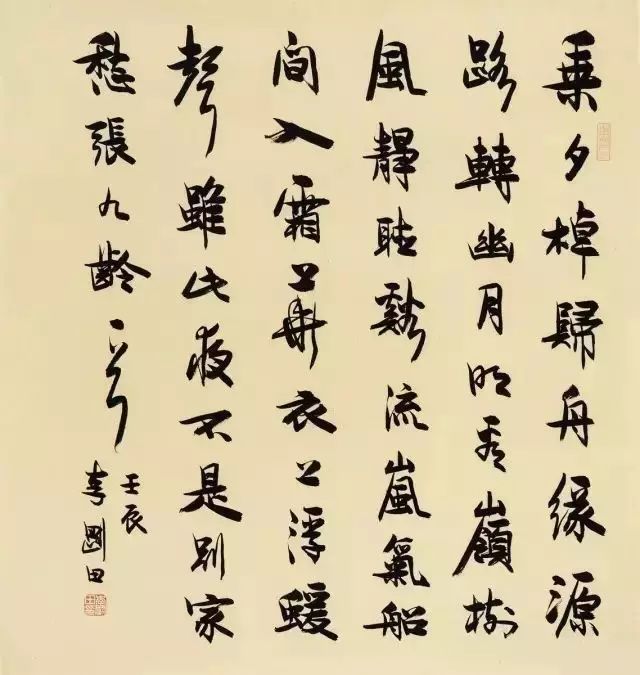 乘夕棹歸舟緣源
路轉幽月明看嶺樹
風靜聽谿流嵐氣船
間入霜華衣上浮蝯
聲雖此夜不是別家
愁張九齡一首
壬辰
李剛田